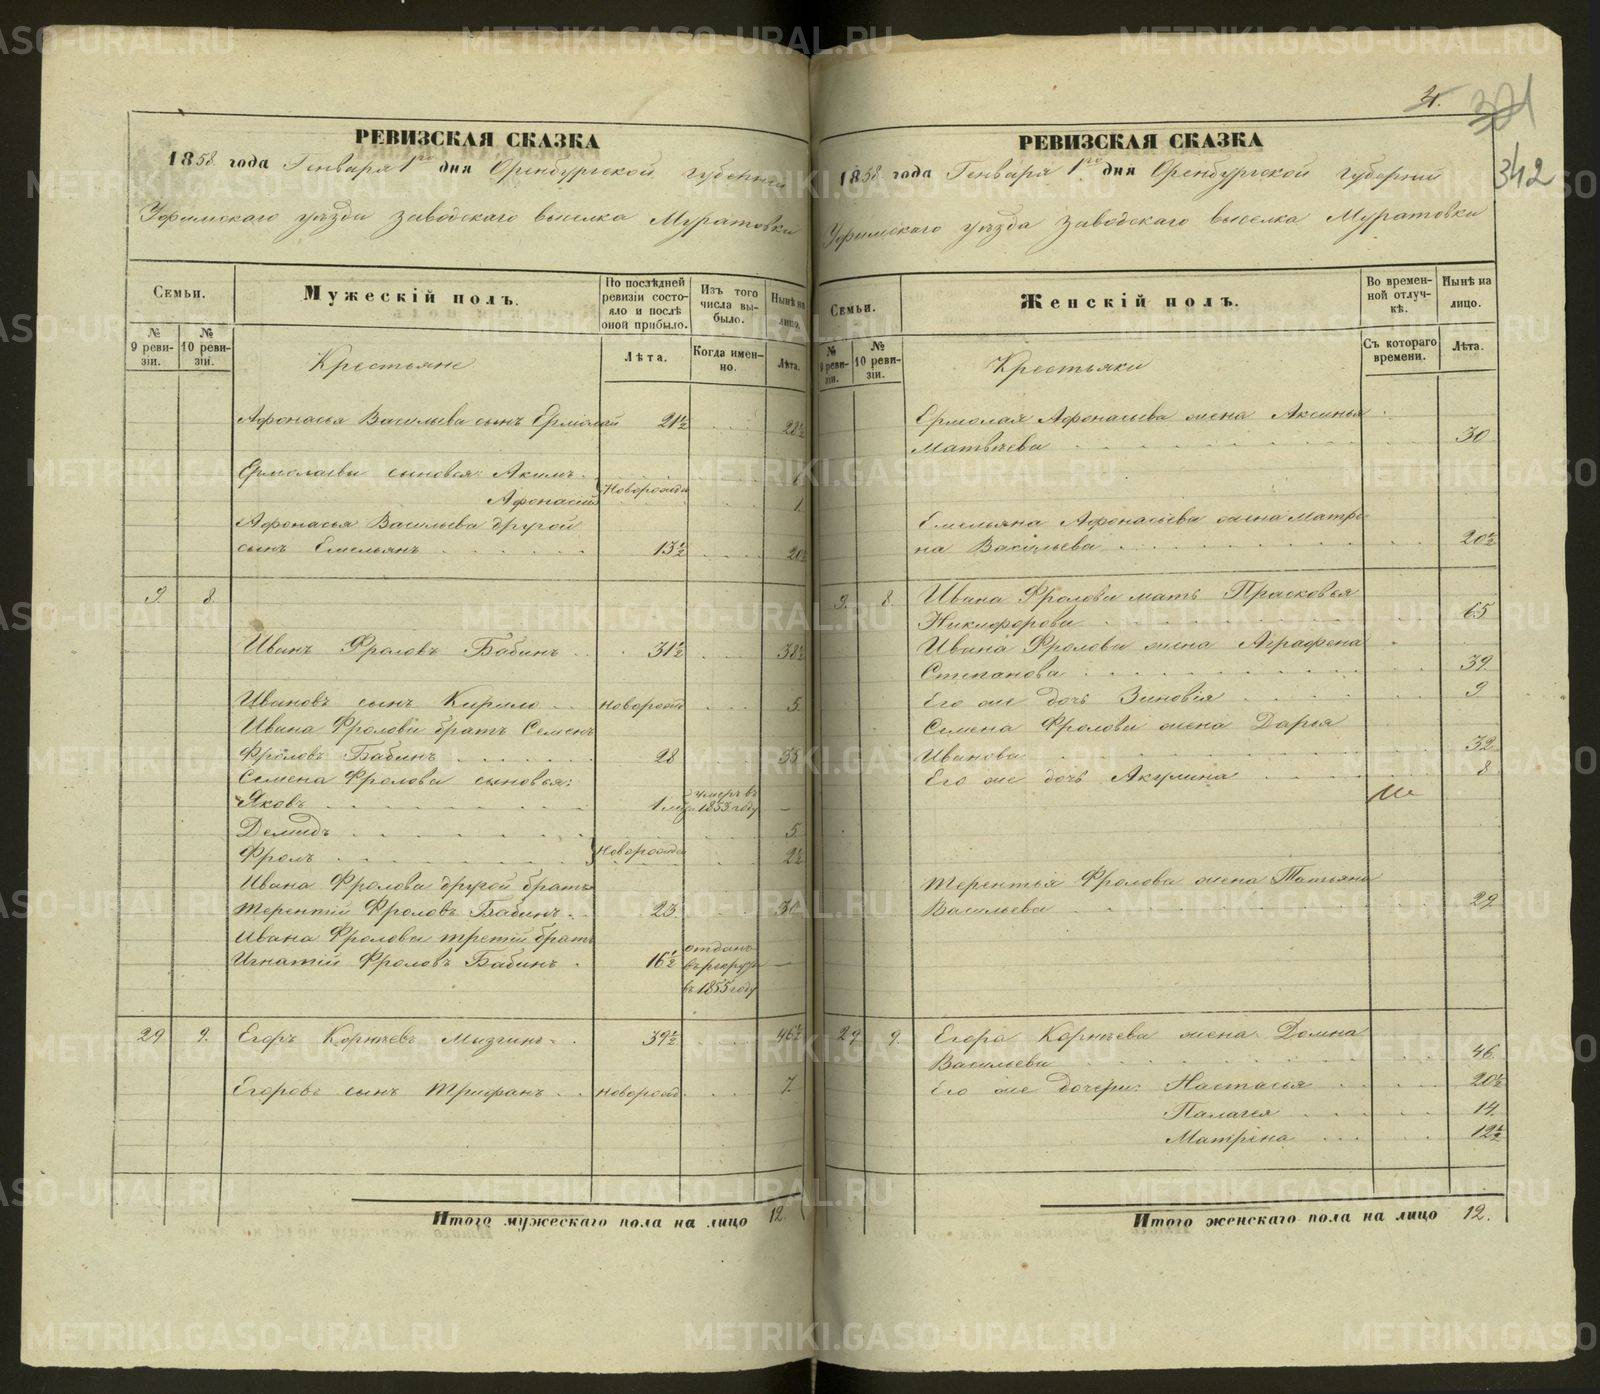 РЕВИЗСКАЯ СКАЗКА
1858 года Генваря 1го дня Оренбургской губернии
Уфимскаго уѣзда заводскаго выселка Муратовки
Семьи.
№ 9 ревизіи.
№ 10 ревизіи.
Мужескій полъ.
По послѣдней ревизіи состояло и послѣ оной прибыло.
Изъ того числа выбыло.
Нынѣ на лицо.
Лѣта.
Когда именно.
Лѣта.
Крестьяне
Афонасья Васильева сынъ Ермолай 21½ 28½
Ермолаевы сыновья: Акимъ
Афонасій Новорожде 1.
Афонасья Васильева другой
сынъ Емельянъ 13½ 20½
9. 8.
Иванъ Фроловъ Бабинъ 31½ 38½
Ивановъ сынъ Кирило Новорожд 5.
Ивана Фролова братъ Семенъ
Фроловъ Бабинъ 28 35
Семена Фролова сыновья:
Яковъ умеръ въ 1853 году —
Демидъ 5.
Фролъ Новорожде 2½
Ивана Фролова другой братъ
Терентій Фроловъ Бабинъ 23. 30
Ивана Фролова третій братъ
Игнатій Фроловъ Бабинъ 16½ отданъ въ рекруты въ 1855 году —
29 9. Егоръ Корнѣевъ Мизгинъ 39½ 46½
Егоровъ сынъ Трифанъ Новорожд 7.
Итого мужескаго пола на лицо 12.
4.
301
342
РЕВИЗСКАЯ СКАЗКА
1858 года Генваря 1го дня Оренбургской губерніи
Уфимскаго уѣзда заводскаго выселка Муратовки
Семьи.
№ 9 ревизіи.
№ 10 ревизіи.
Женскій полъ.
Во временной отлучкѣ.
Нынѣ на лицо.
Съ котораго времени.
Лѣта.
Крестьянки
Ермолая Афонасьева жена Аксинья
Матвѣева 30
Емельяна Афонасьева жена Матре-
на Васильева 20½
9. 8. Ивана Фролова мать Прасковья
Никифорова 65
Ивана Фролова жена Аграфена
Степанова 39.
Его же дочь Зиновія 9
Семена Фролова жена Дарья
Иванова 32
Его же дочь Акулина 8
Терентья Фролова жена Татьяна
Васильева 29
29 9. Егора Корнѣева жена Домна
Васильева 46.
Его же дочери: Настасья 20½
Палагея 14.
Матрена 12½
Итого женскаго пола на лицо 12.
METRIKI.GASO-URAL.RU